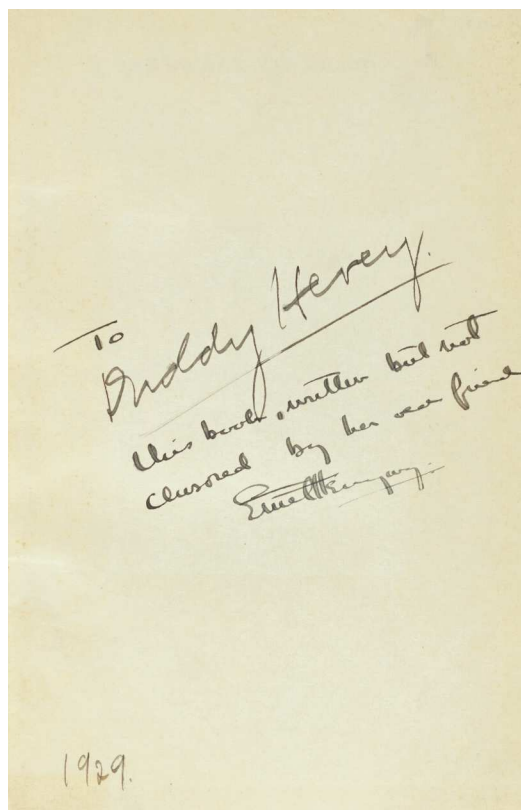 To
Diddy Hevey.
this book, written but not
censored by her old friend
Ernest Hemingway.
1929.